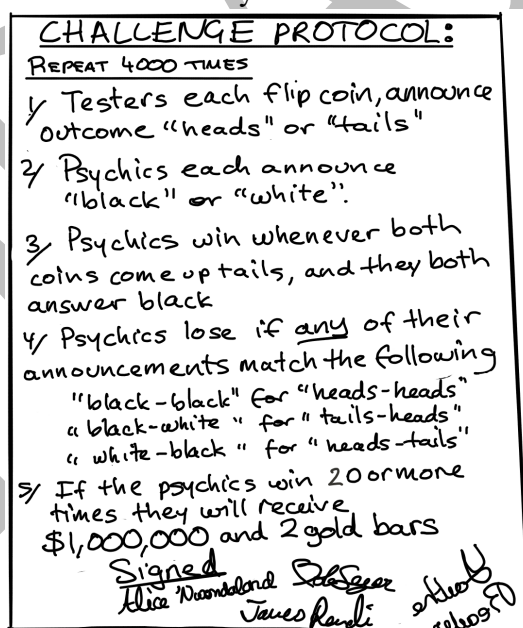 CHALLENGE PROTOCOL:
REPEAT 4000 TIMES
1/ Testers each flip coin, announce
outcome "heads" or "tails"
2/ Psychics each announce
"black" or "white".
3/ Psychics win whenever both
coins come up tails, and they both
answer black
4/ Psychics lose if any of their
announcements match the following
"black-black" for "heads-heads"
"black-white" for "tails-heads"
"white-black" for "heads-tails"
5/ If the psychics win 20 or more
times they will receive
$1,000,000 and 2 gold bars
Signed
Alice
James Randi